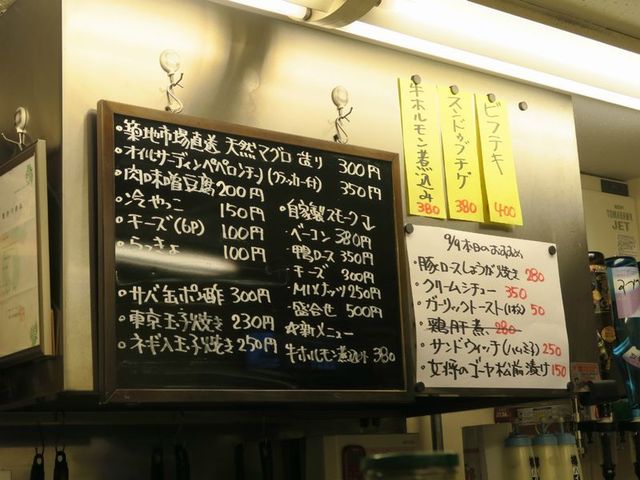 ・築地市場直送 天然マグロ 造り 300円
・オイルサーディンペペロンチーノ(クラッカー付) 350円
・肉味噌豆腐 200円
・冷やっこ 150円
・チーズ(6P) 100円
・らっきょ 100円
・サバ缶ポン酢 300円
・東京玉子焼き 230円
・ネギ入玉子焼き 250円
・自家製スモーク↴
・ベーコン 380円
・鴨ロース 350円
・チーズ 300円
・MIXナッツ 250円
・盛合せ 500円
☆新メニュー
牛ホルモン煮込み 380
牛ホルモン煮込み 380
スンドゥブチゲ 380
ビフテキ 400
9/9 本日のおすすめ
・豚ロースしょうが焼き 280
・クリームシチュー 350
・ガーリックトースト(1枚) 50
・鶏肝煮 280
・サンドウィッチ(ハムミラノ) 250
・女将のゴーヤ松前漬け 150
JET